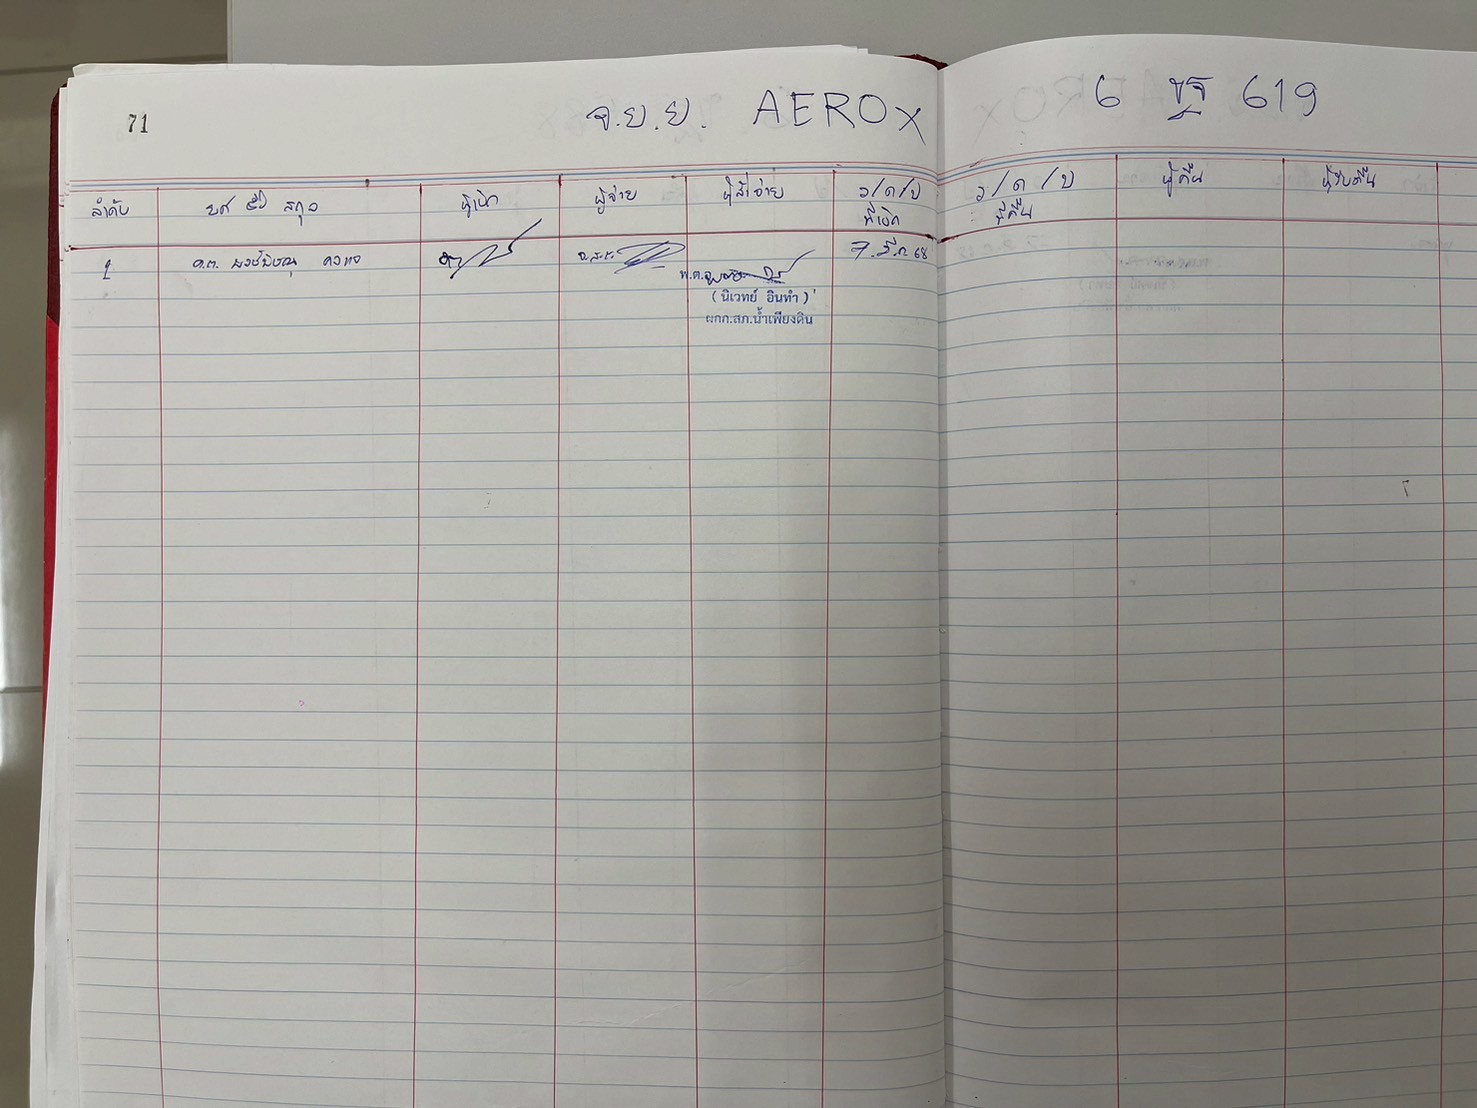 71
จ.ย.ย. AEROX 6 ขฐ 619
ลำดับ ยศ ชื่อ สกุล ผู้เบิก ผู้จ่าย ผู้สั่งจ่าย ว/ด/ป ว/ด/ป ผู้คืน ผู้รับคืน
ที่เบิก ที่คืน
1 ด.ต. จ.ส.ต. พ.ต.อ. 7 มี.ค. 68
(นิเวทย์ อินทำ)
ผกก.สภ.น้ำเพียงดิน